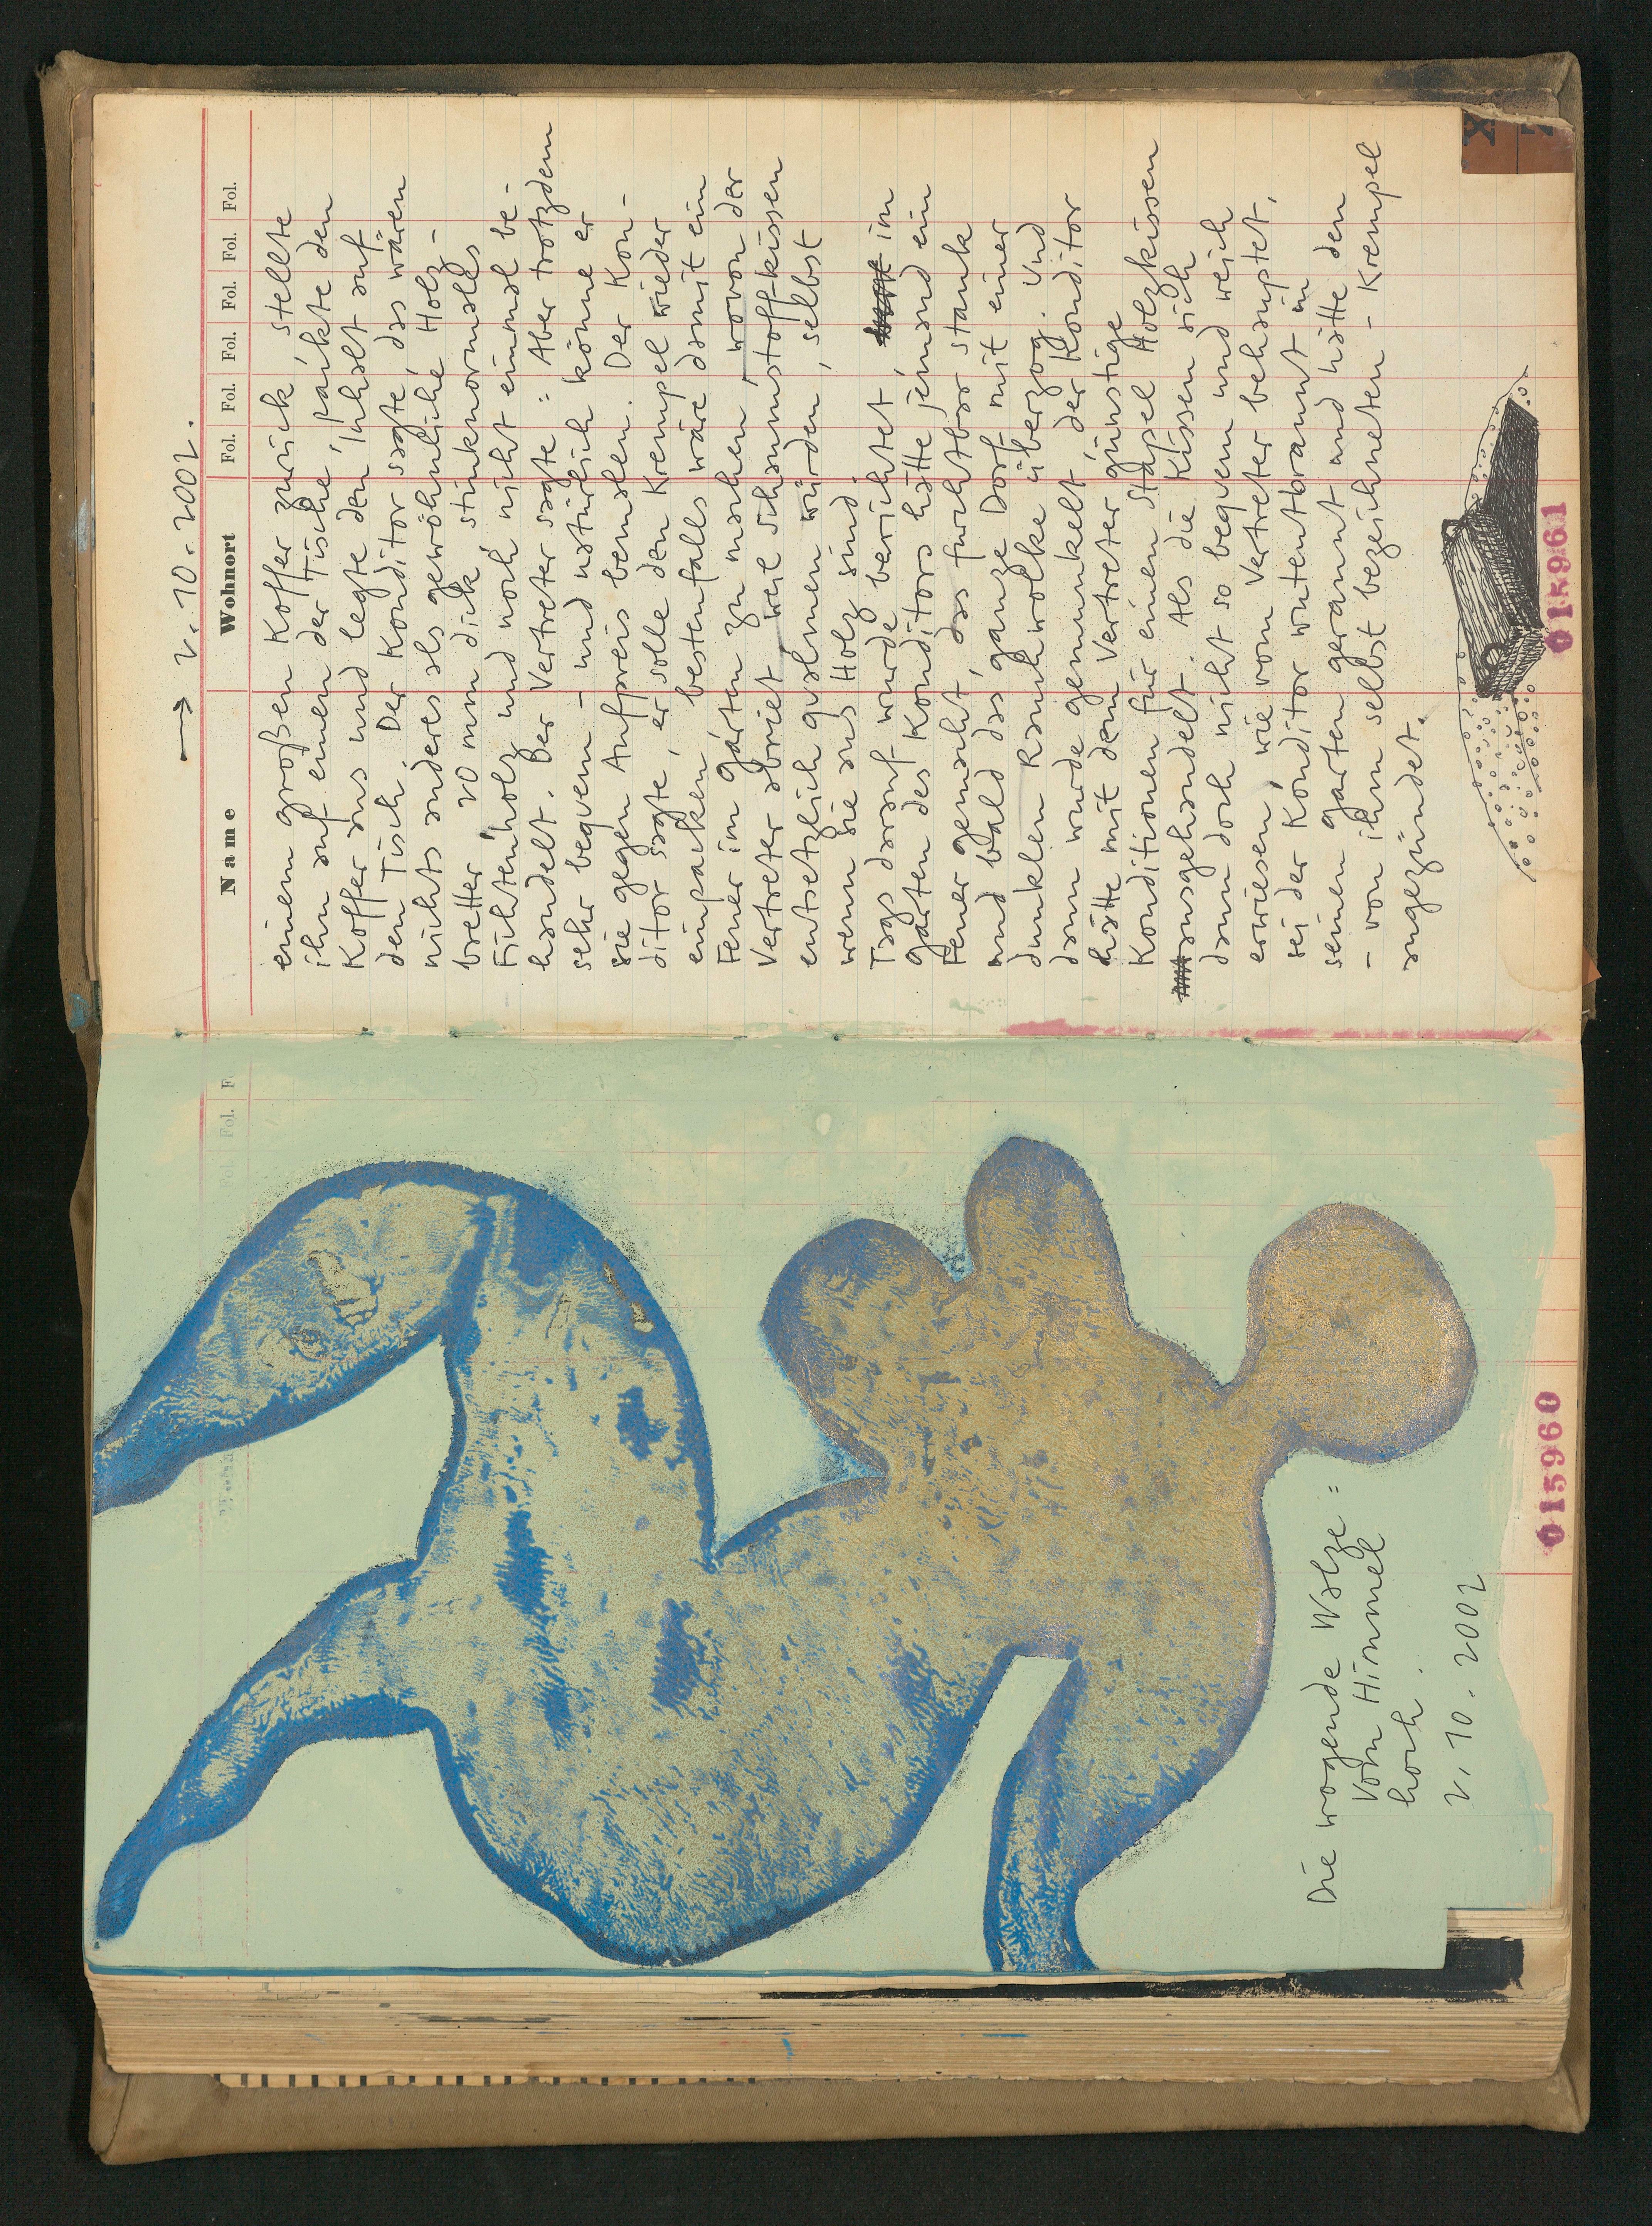 Die wogende Walze:
Vom Himmel
hoch.
2.10.2002
015960
→ 2.10.2002.
Name Wohnort Fol. Fol. Fol. Fol. Fol. Fol.
einem großen Koffer zurück, stellte
ihn auf einen der Tische, packte den
Koffer aus und legte den Inhalt auf
den Tisch. Der Konditor sagte, das wären
nichts anderes als gewöhnliche Holz-
bretter, 20 mm dick, stinknormales
Fichtenholz und noch nicht einmal be-
handelt. Der Vertreter sagte: Aber trotzdem
sehr bequem – und natürlich könne er
sie gegen Aufpreis bemalen. Der Kon-
ditor sagte, er solle den Krempel wieder
einpacken, bestenfalls wäre damit ein
Feuer im Garten zu machen, wovon der
Vertreter abriet, weil Schaumstoffkissen
entsetzlich qualmen würden, selbst
wenn sie aus Holz sind.
Tags darauf wurde berichtet, im
Garten des Konditors hätte jemand ein
Feuer gemacht, das furchtbar stank
und bald das ganze Dorf mit einer
dunklen Rauchwolke überzog. Und
dann wurde gemunkelt, der Konditor
hätte mit dem Vertreter günstige
Konditionen für einen Stapel Holzkissen
ausgehandelt. Als die Kissen sich
dann doch nicht so bequem und weich
erwiesen, wie vom Vertreter behauptet,
sei der Konditor wutentbrannt in
seinen Garten gerannt und hätte den
– von ihm selbst bezeichneten – Krempel
angezündet.
015961